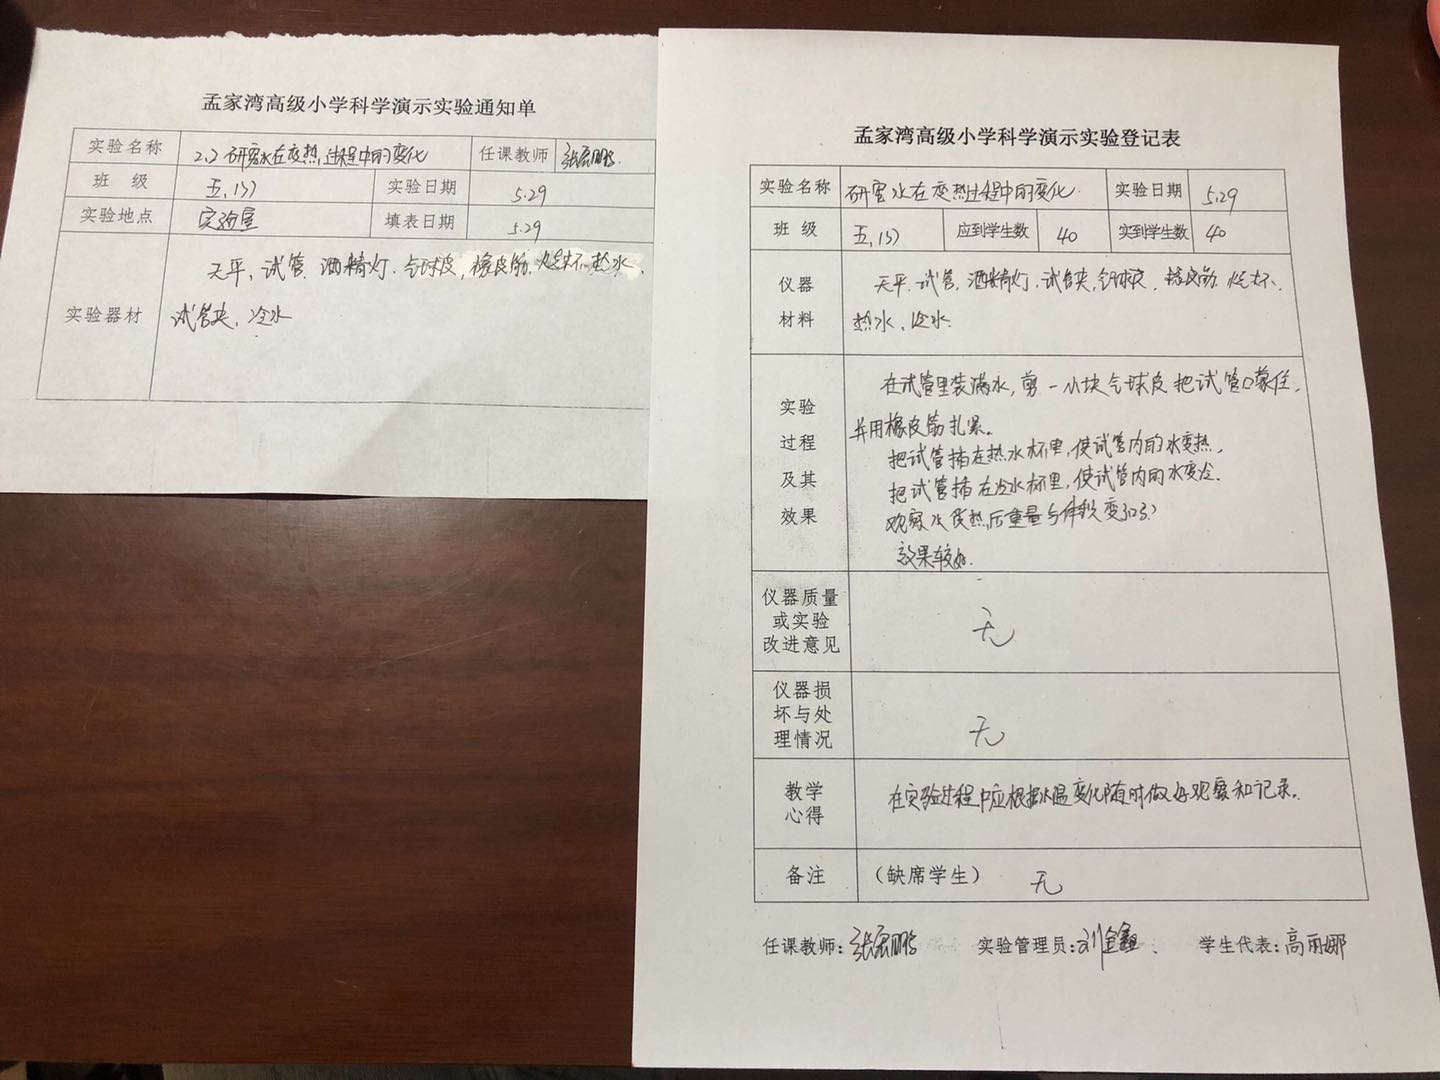 孟家湾高级小学科学演示实验通知单
实验名称 2.2 研究水在变热过程中的变化 任课教师 张鹏
班 级 五.(5) 实验日期 5.29
实验地点 实验室 填表日期 5.29
实验器材 天平、试管、酒精灯、气球皮,橡皮筋、烧杯、热水、
试管夹、冷水
孟家湾高级小学科学演示实验登记表
实验名称 研究水在变热过程中的变化 实验日期 5.29
班 级 五.(5) 应到学生数 40 实到学生数 40
仪器材料 天平、试管、酒精灯、试管夹,气球皮、橡皮筋、烧杯、
热水、冷水.
实验过程及其效果
在试管里装满水,剪一小块气球皮把试管口蒙住,
并用橡皮筋扎紧。
把试管插在热水杯里,使试管内的水变热,
把试管插在冷水杯里,使试管内的水变冷.
观察水受热后重量与体积变
效果较好.
仪器质量或实验改进意见 无
仪器损坏与处理情况 无
教学心得 在实验过程中应根据水温变化随时做好观察和记录.
备注 (缺席学生) 无
任课教师:张鹏 实验管理员:刘鑫 学生代表:高丽娜